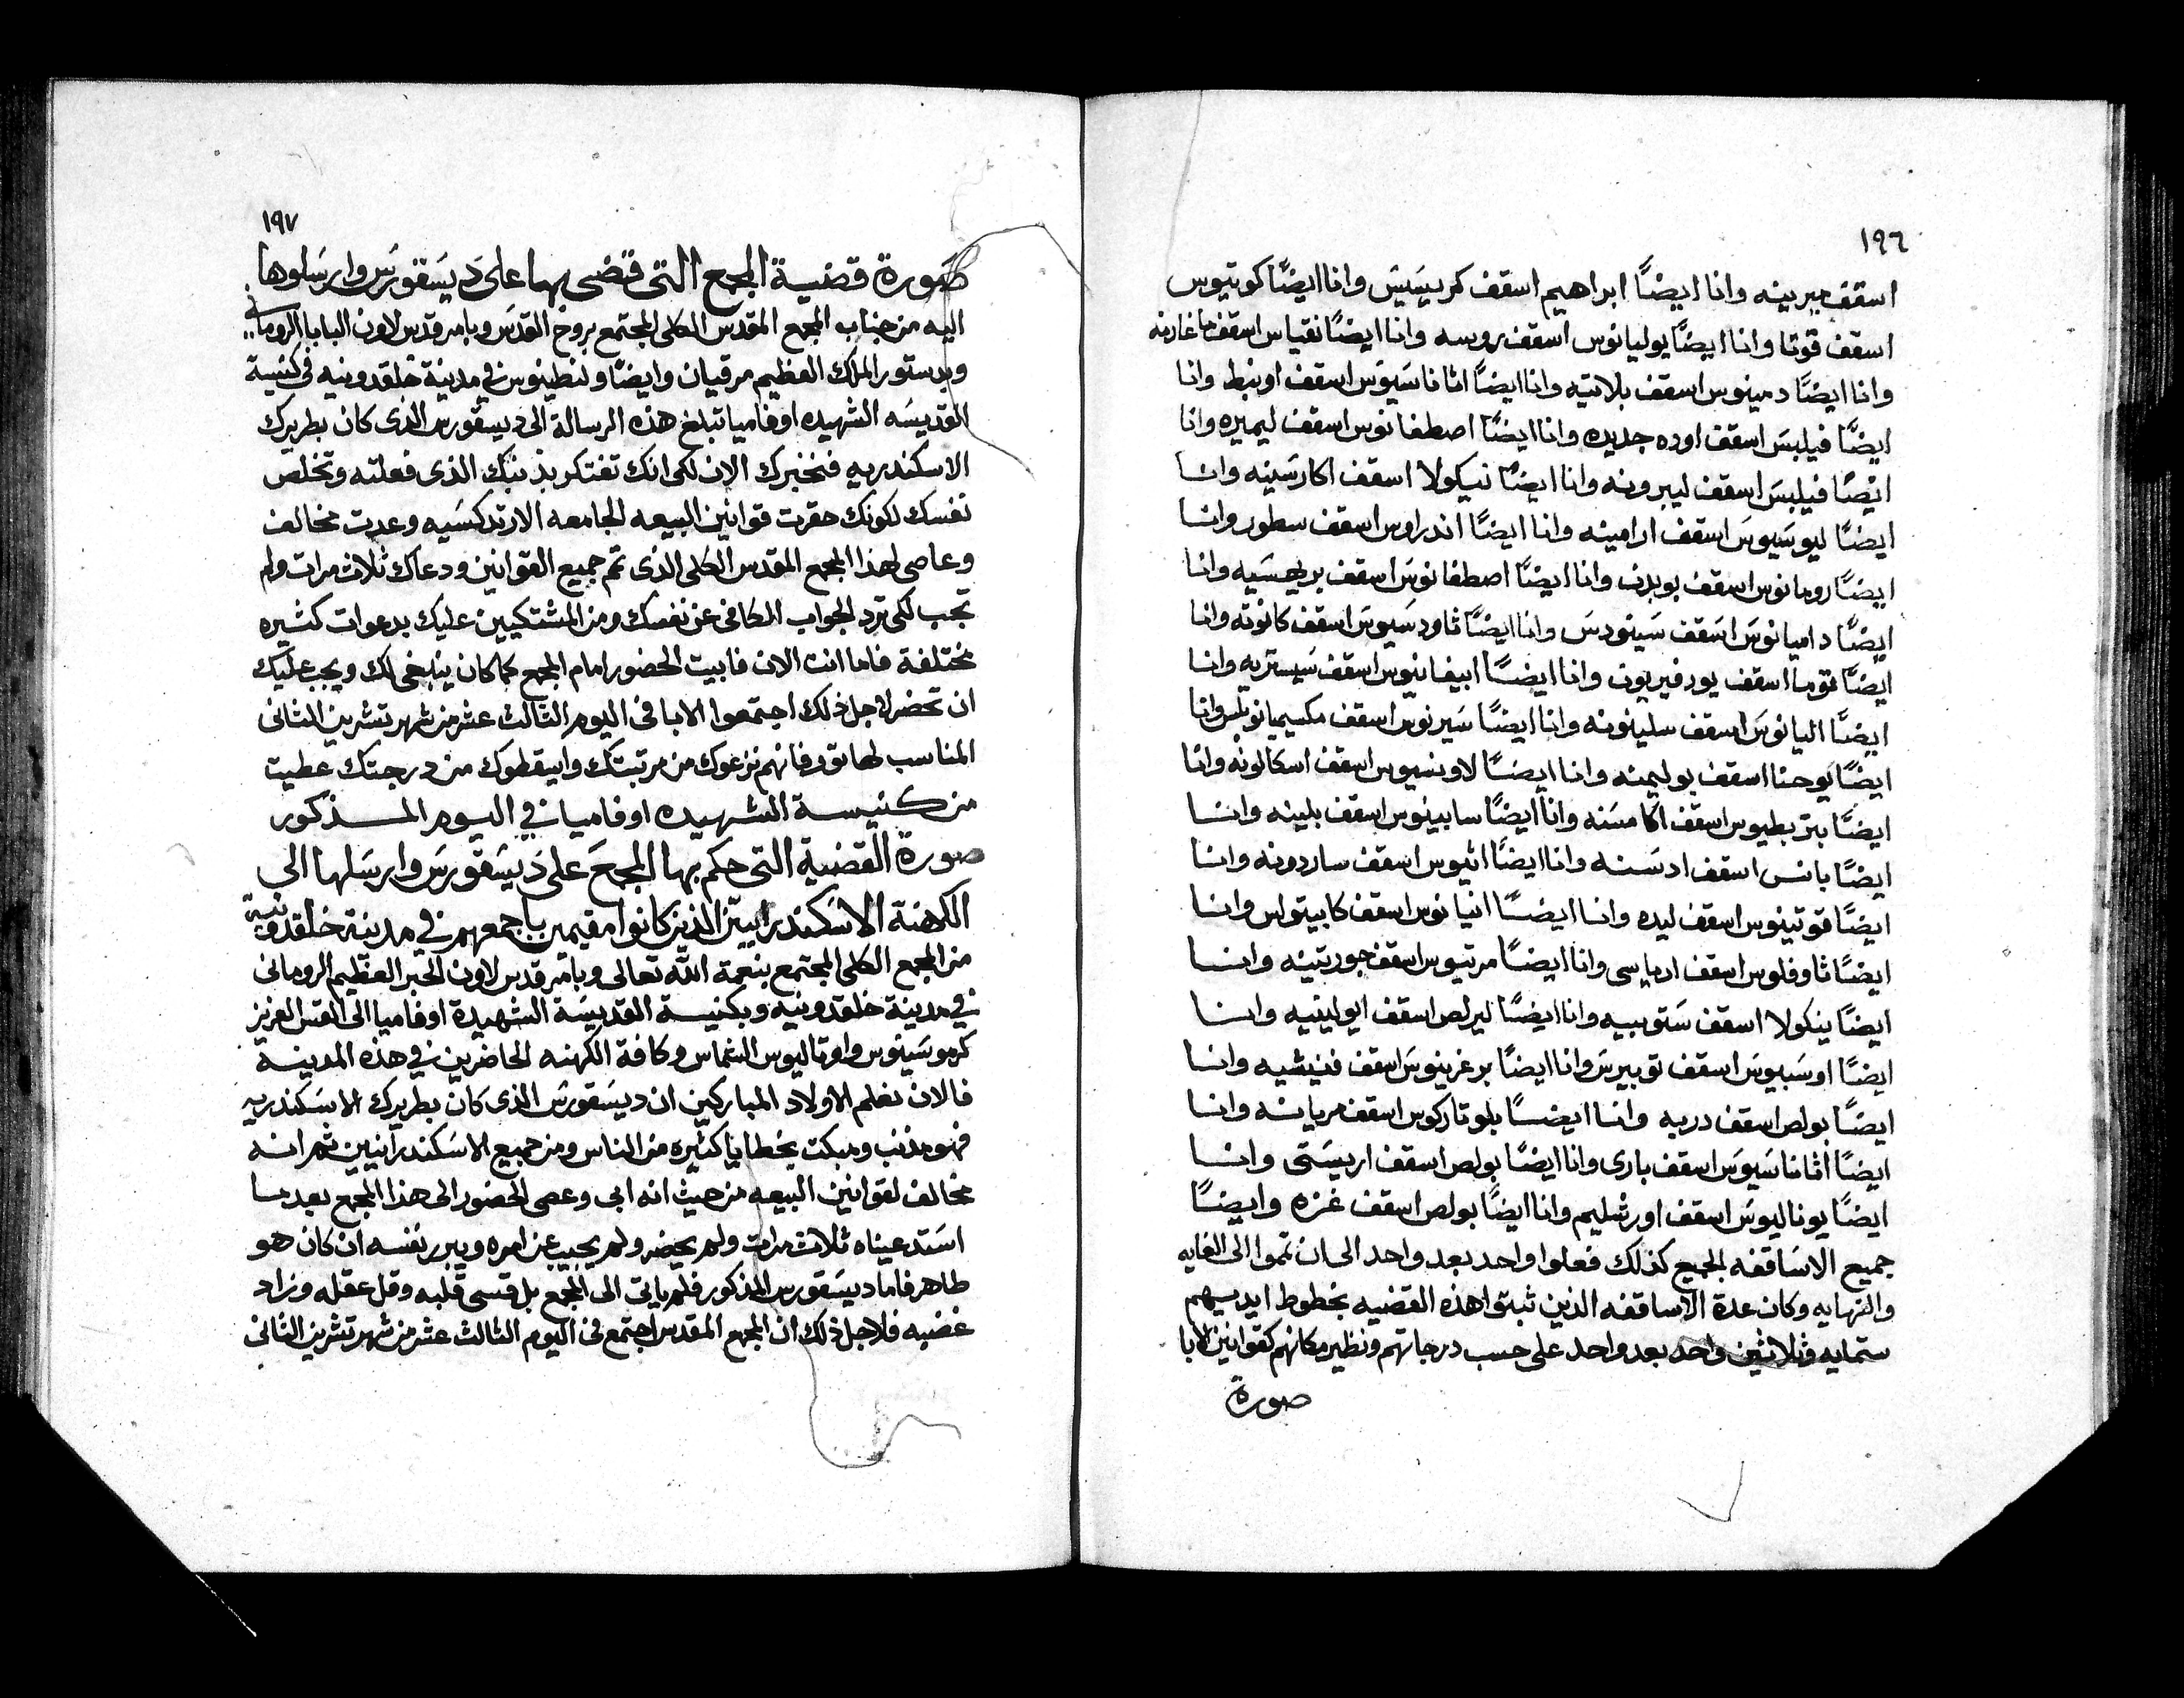 ١٩٦
اسقف جبرينه وانا ايضًا ابراهيم اسقف كربسيس وانا ايضًا كونتيوس
اسقف قوتا وانا ايضًا يوليانوس اسقف روسه وانا ايضًا نقياس اسقف ماغارنه
وانا ايضًا دمينوس اسقف بلاتيه وانا ايضًا اثاناسيوس اسقف اوبنط وانا
ايضًا فيلبس اسقف اوده جديده وانا ايضًا اصطفانوس اسقف ليميره وانا
ايضًا فيلبس اسقف ليبرونه وانا ايضًا نيكولا اسقف اكارسينه وانا
ايضًا ليوسيوس اسقف ارامينه وانا ايضًا اندراوس اسقف سطور وانا
ايضًا رومانوس اسقف بوبدن وانا ايضًا اصطفانوس اسقف بريحسيه وانا
ايضًا داميانوس اسقف سينودس وانا ايضًا ثاودسيوس اسقف كانوته وانا
ايضًا توما اسقف يورفيريون وانا ايضًا ابيفانيوس اسقف سيستريه وانا
ايضًا اليانوس اسقف سلينونه وانا ايضًا سيرنوس اسقف مكسيميانوبلس وانا
ايضًا يوحنا اسقف بوليمنه وانا ايضًا لاونسيوس اسقف اسكالونه وانا
ايضًا بتربطيوس اسقف اكامسنه وانا ايضًا سابينوس اسقف بلينه وانا
ايضًا بانس اسقف ادسنه وانا ايضًا اثيوس اسقف ساردونه وانا
ايضًا قوتينوس اسقف ليده وانا ايضًا انيانوس اسقف كابيتواس وانا
ايضًا ثاوفلوس اسقف ارياسى وانا ايضًا مرتيوس اسقف جورتينه وانا
ايضًا ينكولا اسقف ستوبيه وانا ايضًا ليرلص اسقف ايولينيه وانا
ايضًا اوسبيوس اسقف توبيرس وانا ايضًا برغرينوس اسقف فنيشيه وانا
ايضًا بولص اسقف دربه وانا ايضًا بلوتاركوس اسقف مريانه وانا
ايضًا اثاناسيوس اسقف بارى وانا ايضًا بولص اسقف اريستى وانا
ايضًا يوناليوس اسقف اورشليم وانا ايضًا بولص اسقف غزه وايضًا
جميع الاساقفه الجميع كذلك فعلوا واحد بعد واحد الى ان تموا الى الغايه
والنهايه وكان عدة الاساقفه الذين ثبتوا هذه القضيه بخطوط ايديهم
ستمايه وثلاثين واحد بعد واحد على حسب درجاتهم ونظير مكانهم كقوانين الابا
صورة
١٩٧
صورة قضية المجمع التى قضى بها على ديسقورس وارسلوها
اليه من جناب المجمع المقدس الكلى المجتمع بروح القدس وبامر قدس لاون البابا الرومانى
وبدستور الملك العظيم مرقيان وايضًا ولنطينوس في مدينة خلقدونيه فى كنيسة
القديسه الشهيده اوفاميا تبلغ هذه الرسالة الى ديسقورس الذى كان بطريرك
الاسكندريه فنخبرك الان لكى انك تفتكر بذنبك الذى فعلته وتخلص
نفسك لكونك حقرت قوانين البيعه الجامعه الارتدكسيه وعدت مخالف
وعاصى لهذا المجمع المقدس الكلى الذى تم جميع القوانين ودعاك ثلاث مرات ولم
تجب لكى ترد الجواب الكافى عن نفسك ومن المشتكيين عليك بدعوات كثيره
مختلفة فاما انت الان فابيت الحضور امام المجمع كما كان ينبغى لك ويجب عليك
ان تحضر لاجل ذلك اجتمعوا الابا فى اليوم الثالث عشر من شهر تشرين الثانى
المناسب لهاتور فانهم نزعوك من مرتبتك واسقطوك من درجتك عطيت
من كنيسة الشهيده اوفاميا في اليوم المذكور
صورة القضية التى حكم بها المجمع على ديسقورس وارسلها الى
الكهنة الاسكندرانيين الذين كانوا مقيمين باجمعهم في مدينة خلقدونية
من المجمع الكلى المجتمع بنعمة الله تعالى وبامر قدس لاون الحبر العظيم الرومانى
في مدينة خلقدونيه وبكنيسة القديسة الشهيدة اوفاميا الى القس العزيز
كرموسينوس واوتاليوس الشماس وكافة الكهنه الحاضرين في هذه المدينة
فالان نعلم الاولاد المباركين ان ديسقورس الذى كان بطريرك الاسكندريه
فهو مذنب ومبكت بخطايا كثيره من الناس ومن جميع الاسكندرانيين ثم انه
مخالف لقوانين البيعه من حيث انه ابى وعصى الحضور الى هذا المجمع بعد ما
استدعيناه ثلاث مرات ولم يحضر ولم يجيب عن امره ويبرر نفسه ان كان هو
طاهر فاما ديسقورس المذكور فلم ياتى الى المجمع بل قسى قلبه وقل عقله وزاد
غضبه فلاجل ذلك ان المجمع المقدس اجتمع فى اليوم الثالث عشر من شهر تشرين الثانى